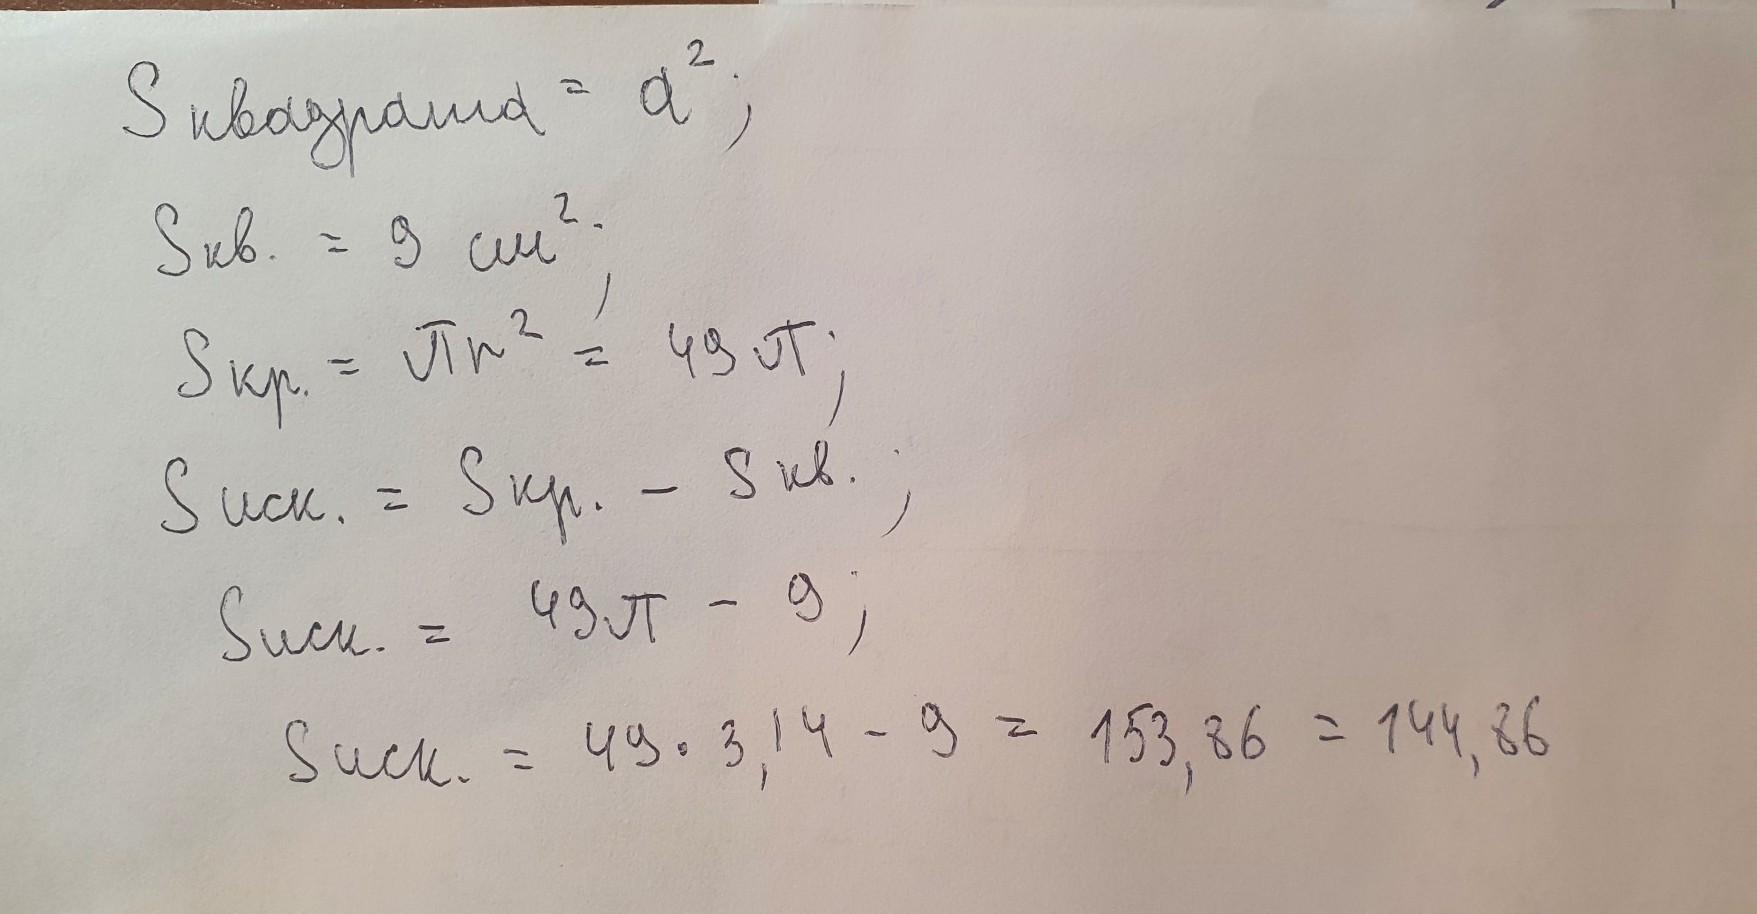 S квадрата = a²;
S кв. = 9 см²;
S кр. = πr² = 49π;
S иск. = S кр. - S кв.;
S иск. = 49π - 9;
S иск. = 49 · 3,14 - 9 = 153,86 = 144,86